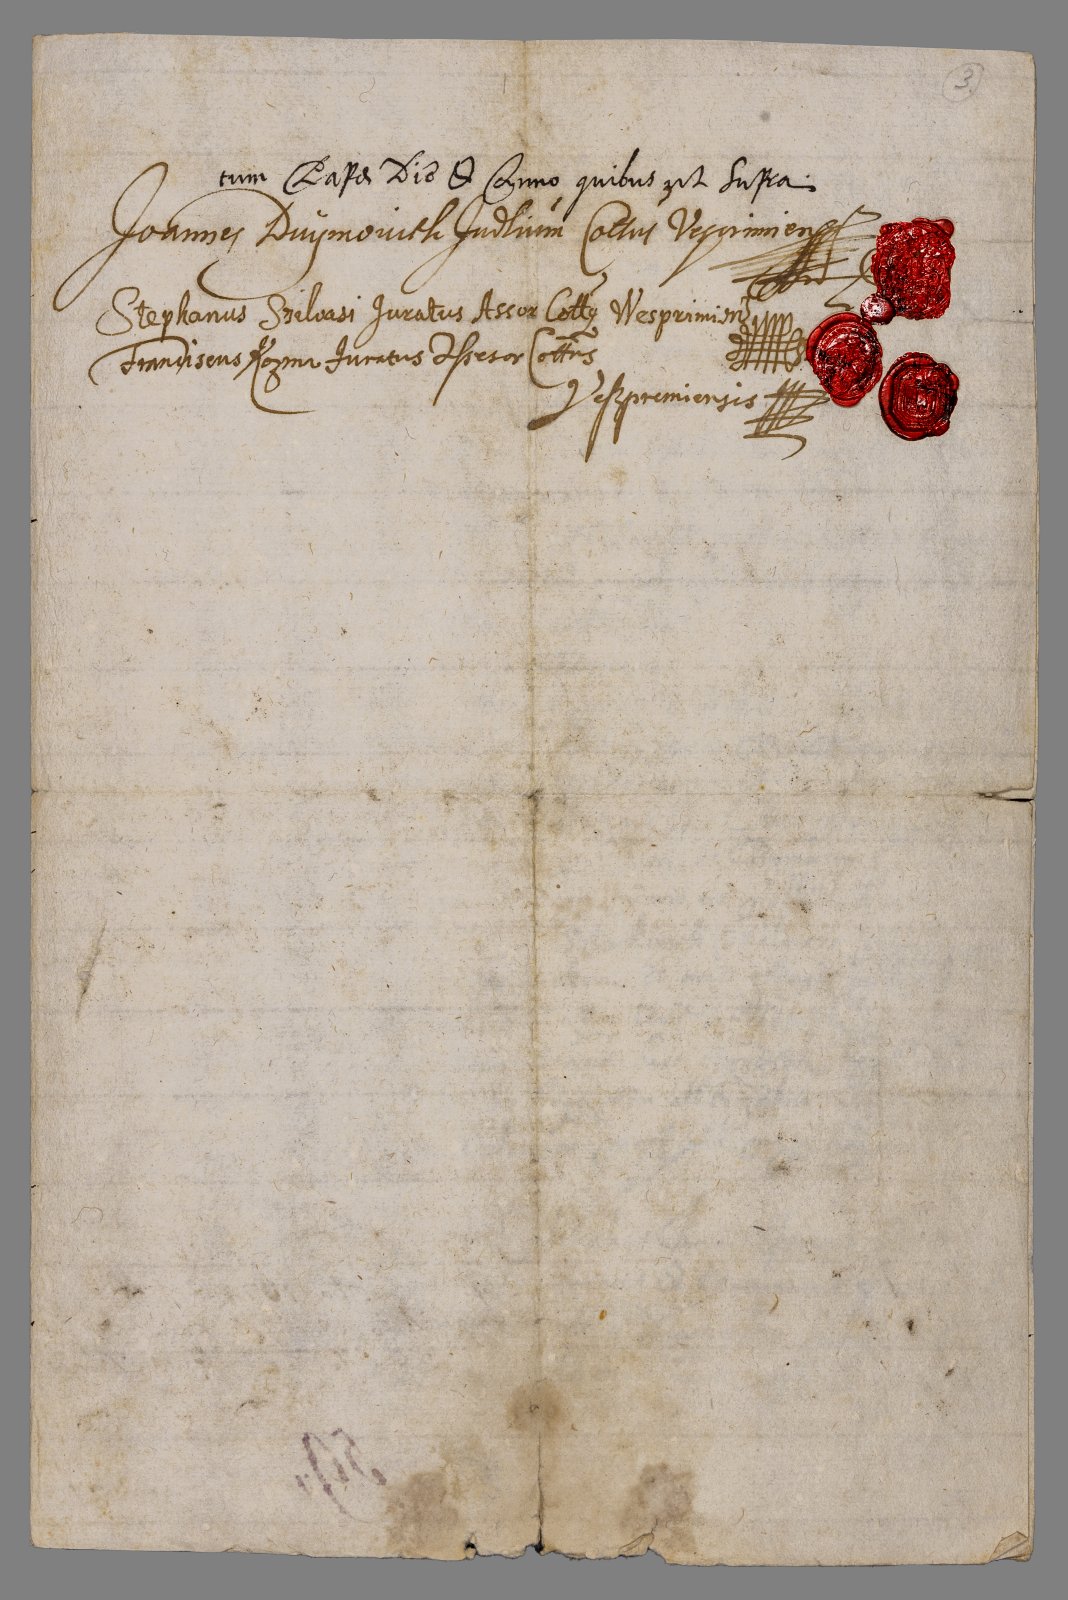 3
tum Papæ Die & Anno quibus ut Supra.
Joannes Duymovith Judlium Cottus Vesprimiensis
Stephanus Szilvasi Juratus Assor Cotty Wesprimien
Franciscus Kozma Juratus Assesor Cottus
Veszpremiensis